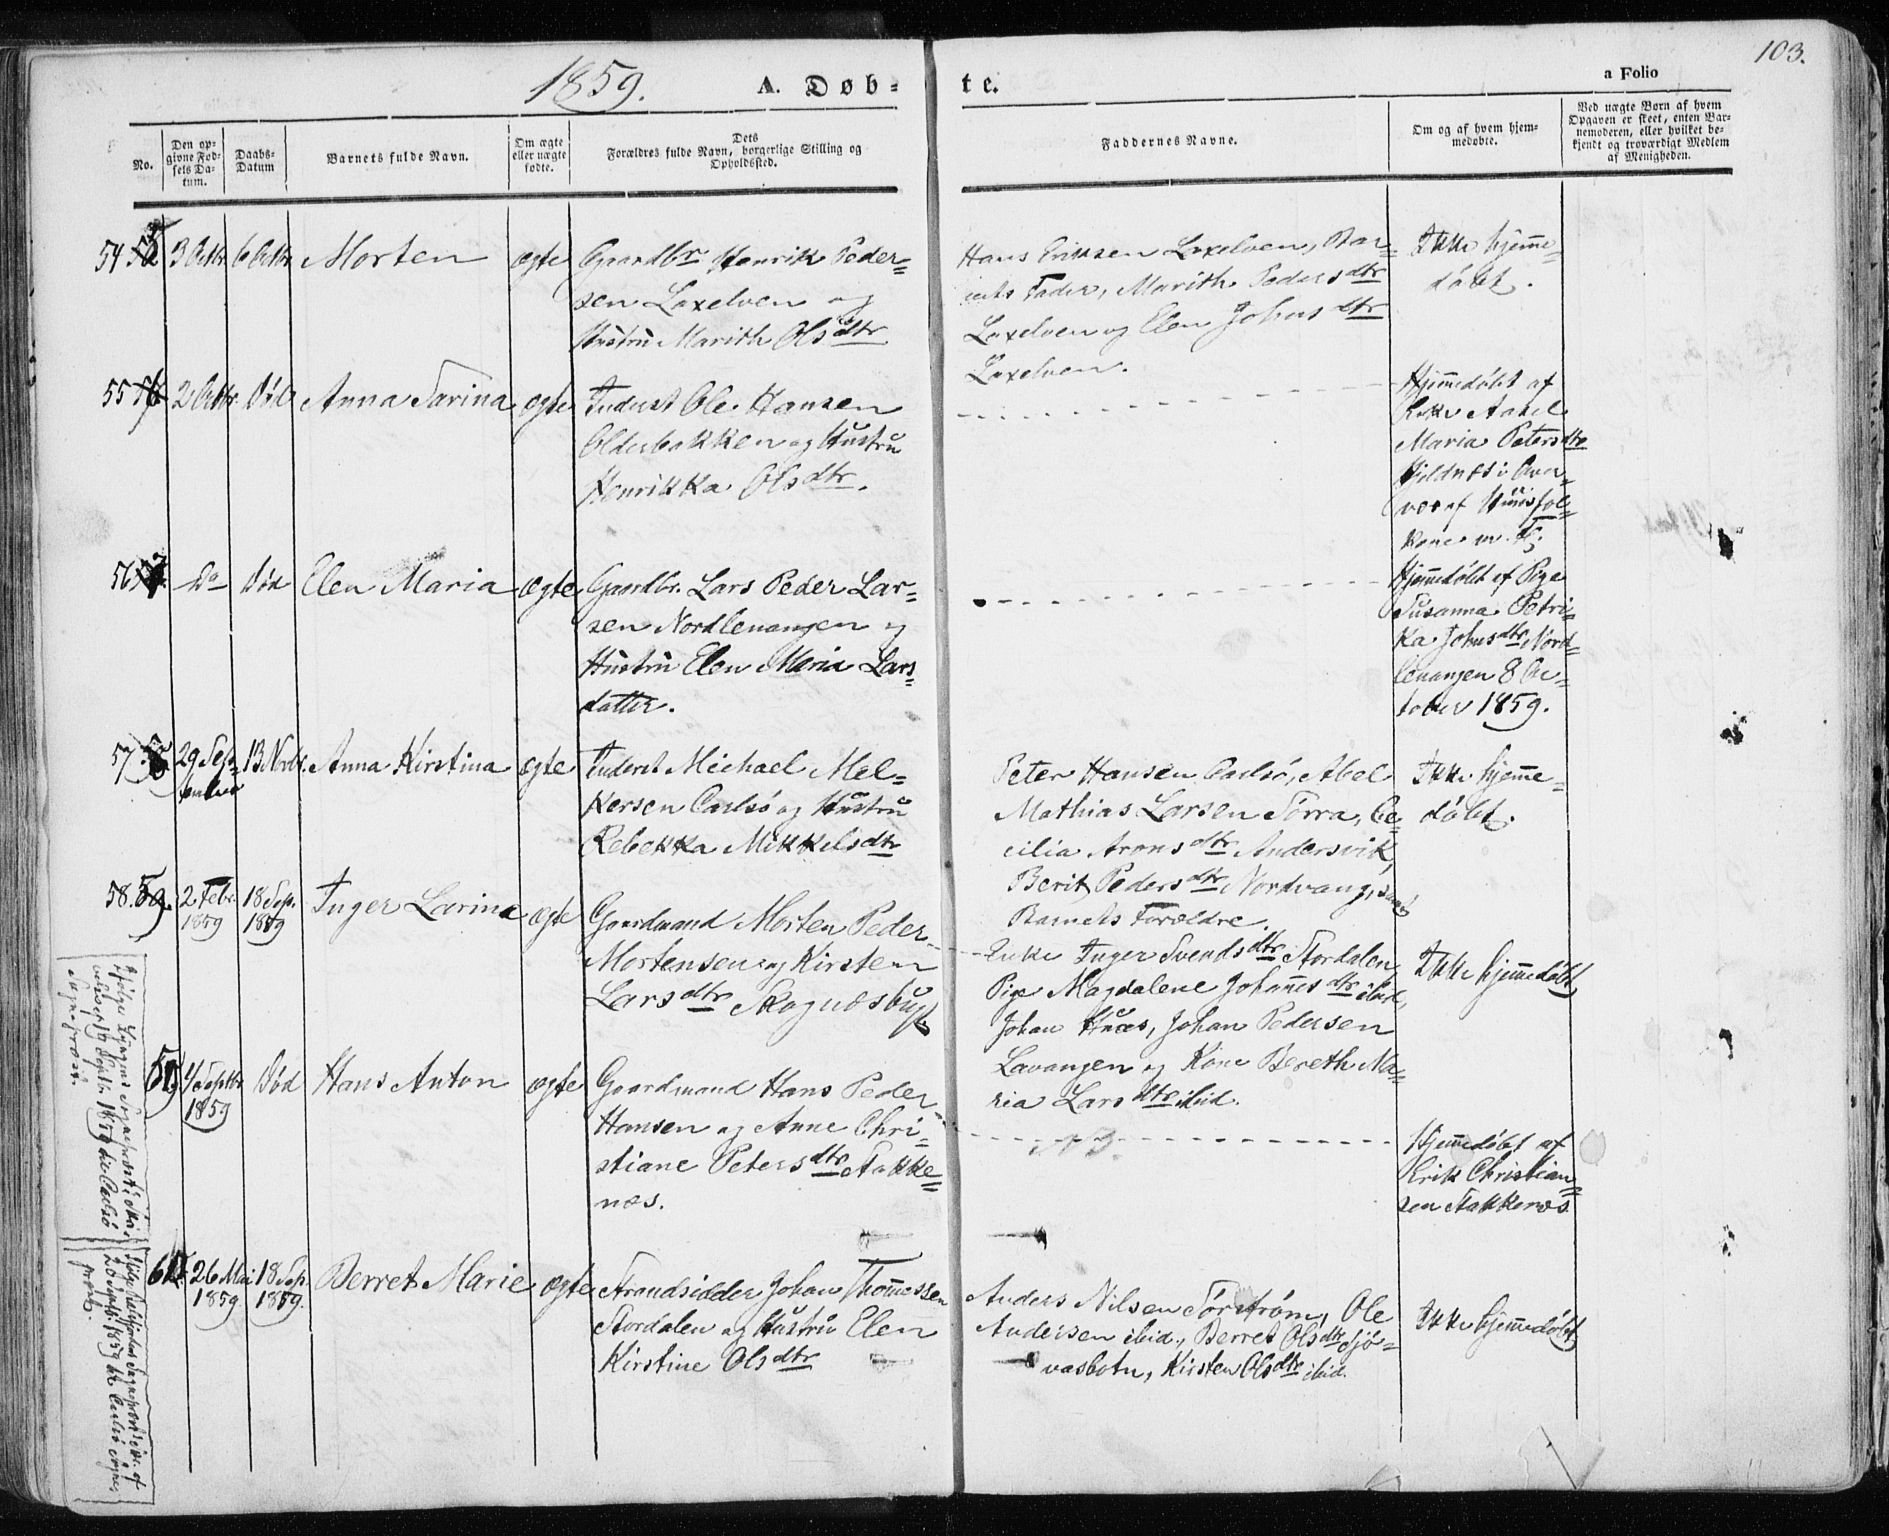 103.
1859.
A. Døb-
te.
a Folio
No.
Den op-
givne Fød-
sels Da-
tum.
Daabs-
Datum
Barnets fulde Navn.
Om ægte
eller uægte
fødte.
Dets
Forældres fulde Navn, borgerlige Stilling og
Opholdssted.
Faddernes Navne.
Om og af hvem hjem-
medøbte.
Ved uægte Børn af hvem
Opgaven er skeet, enten Bar-
nemoderen, eller hvilket be-
kjendt og troværdigt Medlem
af Menigheden.
54
3 Octbr
6 Octbr
Morten
ægte
Gaardbr. Henrik Peder-
sen Laxelven og
Hustru Marith Olsdtr
Hans Eriksen Laxelven, Bar-
nets Fader, Marith Pedersdtr
Laxelven og Elen Johnsdtr
Laxelven.
Ikke hjemme-
døbt.
55
2 Octbr
Død
Anna Sarina
ægte
Inderst Ole Hansen
Olderbakken og Hustru
Henrikka Olsdtr.
Hjemmedøbt af
Enke
Maria Petersdtr
56
Do
Død
Elen Maria
ægte
Gaardbr. Lars Peder Lar-
sen Nordlenangen og
Hustru Elen Maria Lars-
datter.
Hjemmedøbt af Pige
Susanna Petri-
ka Johnsdtr Nord-
lenangen 8 Oc-
tober 1859.
57
29 Sep-
tember
13 Novbr.
Anna Kirstina
ægte
Inderst Michael Mel-
kersen Carlsø og Hustru
Rebekka Mikkelsdtr
Peter Hansen Carlsø, Abel
Mathias Larsen Torra, Ce-
cilia Aronsdtr Andersvik,
Berit Pedersdtr Nordvang, samt
Barnets Forældre.
Ikke hjemme-
døbt.
58.
2 Febr.
1859
18 Sep.
1859
Inger Larina
ægte
Gaardmand Morten Peder
Mortensen og Kirsten
Larsdtr Skognæsbugt
Enke Inger Svendsdtr Stordalen,
Pige Magdalene Johannesdtr ibid,
Johan Hnæs, Johan Pedersen
Lavangen og Kone Bereth Ma-
ria Larsdtr ibid.
Ikke hjemmedøbt
59
Septbr
1859
Død
Hans Anton
ægte
Gaardmand Hans Peder
Hansen og Anne Chri-
stiane Petersdtr Stakke-
næs.
Hjemmedøbt af
Erik Christian-
sen Stakkenæs.
60
26 Mai
1859
18 Sep.
1859.
Berret Marie
ægte
Strandsidder Johan Thomessen
Stordalen og Hustru Elen
Kirstine Olsdtr
Anders Nilsen Sørstrøm, Ole
Andersen ibid., Berret Olsdtr Sjø-
vasbotn, Kirsten Olsdtr ibid.
Ikke hjemmedøbt